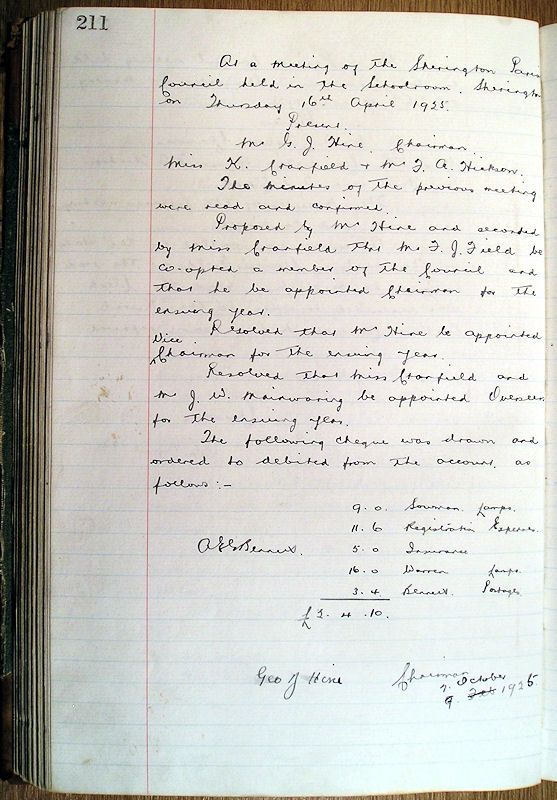 211
At a meeting of the Sherington Paris
Council held in the Schoolroom, Sherington
on Thursday 16th April 1925.
Present.
Mr G. J. Hine, Chairman.
Miss K. Cranfield & Mr F. A. Hickson.
The minutes of the previous meeting
were read and confirmed.
Proposed by Mr Hine and seconded
by Miss Cranfield that Mr F. J. Field be
co-opted a member of the Council and
that he be appointed Chairman for the
ensuing year.
Resolved that Mr Hine be appointed
Vice
Chairman for the ensuing year.
Resolved that Miss Cranfield and
Mr J. W. Mainwaring be appointed Overseers
for the ensuing year.
The following cheque was drawn and
ordered to debited from the account as
follows:-
9. 0. Sowman Lamps.
11. 6 Registration Expenses.
A E G Bennett. 5. 0 Insurance
16. 0 Warren Lamps.
3. 4. Bennett Postages
£2. 4. 10.
Geo J Hine Chairman
7. October
9. 1925